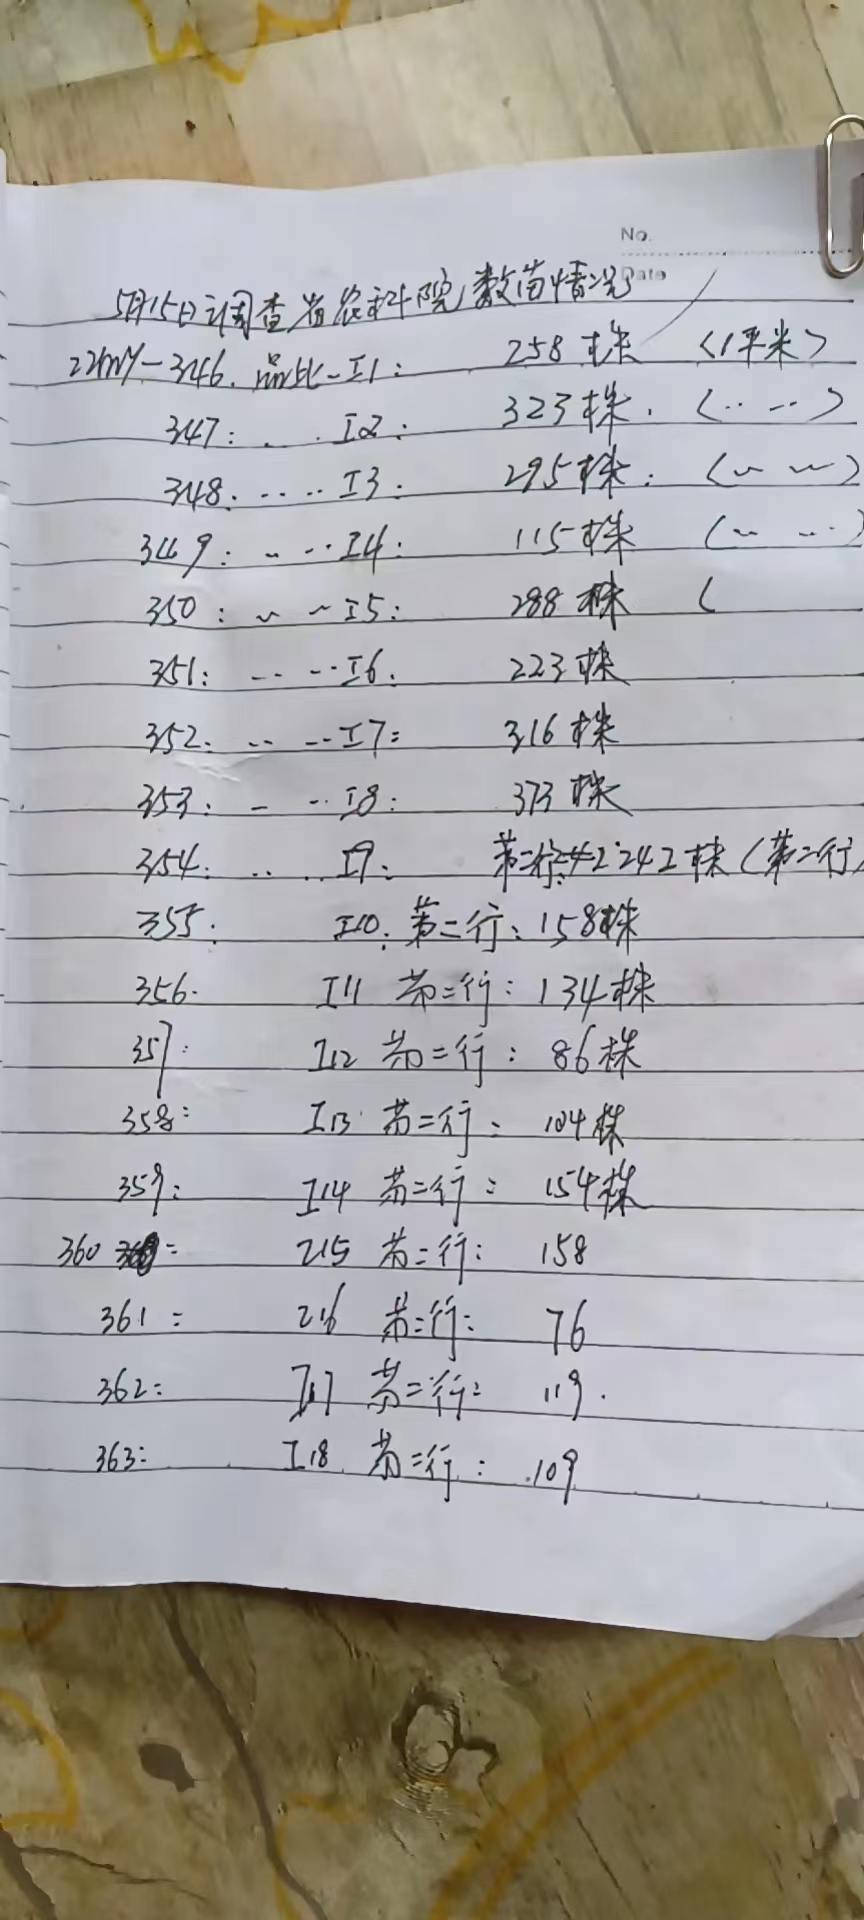 No.
Date
5月15日调查省农科院数苗情况
22MY-346. 品比-I1: 258株 (1平米)
347: .. .. I2: 323株. (.. ..)
348. .. .. I3. 295株. (.. ..)
349: .. .. I4: 115株 (.. ..)
350: .. .. I5: 288株 (
351: .. .. I6. 223株
352. .. .. I7: 316株
353: .. .. I8: 373株
354. .. .. I9: 第二行 242株 (第二行
355. I10. 第二行: 158株
356. I11 第二行: 134株
357: I12 第二行: 86株
358: I13 第二行: 104株
359: I14 第二行: 154株
360 : I15 第二行: 158
361: I16 第二行: 76
362: I17 第二行: 119.
363: I18. 第二行: 109